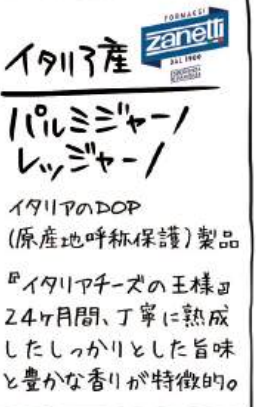 FORMAGGI
zanetti
DAL 1900
イタリア産
パルミジャーノ
レッジャーノ
イタリアのDOP
(原産地呼称保護)製品
『イタリアチーズの王様』
24ヶ月間、丁寧に熟成
したしっかりとした旨味
と豊かな香りが特徴的。